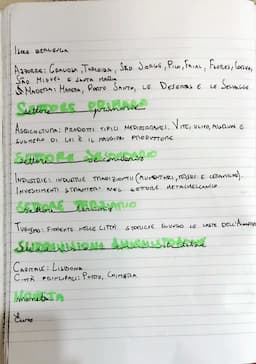 ISOLE BERLENGA
AZZORRE: GRACIOSA, TERCEIRA, SÃO JORGE, PICO, FAIAL, FLORES, CORVO,
SÃO MIGUEL E SANTA MARIA
MADEIRA: MADEIRA, PORTO SANTO, LE DESERTAS E LE SELVAGGE
SETTORE PRIMARIO
AGRICOLTURA: PRODOTTI TIPICI MEDITERRANEI. VITE, ULIVO, AGRUMI E
SUGHERO DI CUI È IL MAGGIOR PRODUTTORE
SETTORE SECONDARIO
INDUSTRIE: INDUSTRIE TRADIZIONALI (ALIMENTARI, TESSILI E CERAMICHE).
INVESTIMENTI STRANIERI NEL SETTORE METALMECCANICO.
SETTORE TERZIARIO
TURISMO: FIORENTE NELLE CITTÀ STORICHE E LUNGO LE COSTE DELL'
SUDDIVISIONE AMMINISTRATIVA
CAPITALE: LISBONA
CITTÀ PRINCIPALI: PORTO, COIMBRA
MONETA
Euro